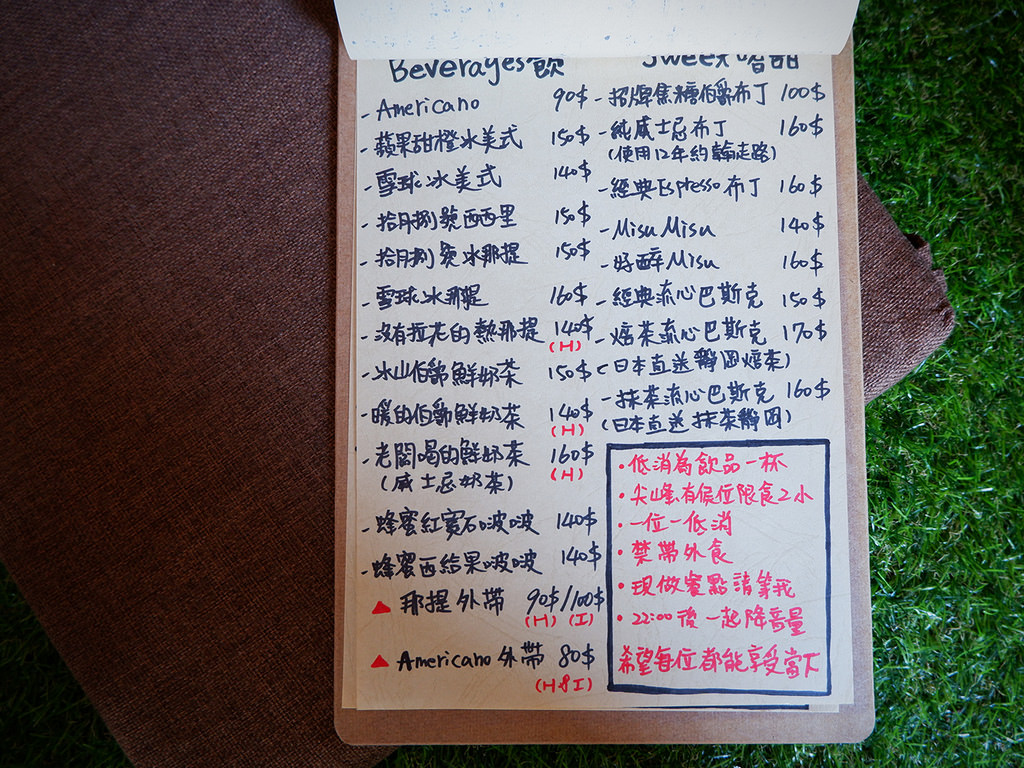 Beverages飲
- Americano 90$
- 蘋果甜橙冰美式 150$
- 雪球冰美式 140$
- 拾月捌號西西里 150$
- 拾月捌號冰那提 150$
- 雪球冰那提 160$
- 沒有拉花的熱那提 140$
(H)
- 冰山伯爵鮮奶茶 150$
- 暖的伯爵鮮奶茶 140$
(H)
- 老闆喝的鮮奶茶 160$
(威士忌奶茶) (H)
- 蜂蜜紅寶石啵啵 140$
- 蜂蜜西結果啵啵 140$
▲ 那提外帶 90$/100$
(H) (I)
▲ Americano外帶 80$
(H&I)
Sweet 嗜甜
- 招牌焦糖伯爵布丁 100$
- 純威士忌布丁 160$
(使用12年約翰走路)
- 經典Espresso布丁 160$
- Misu Misu 140$
- 好醉Misu 160$
- 經典流心巴斯克 150$
- 焙茶流心巴斯克 170$
(日本直送靜岡焙茶)
- 抹茶流心巴斯克 160$
(日本直送抹茶靜岡)
·低消為飲品一杯
·尖峰.有候位限食2小
·一位一低消
·禁帶外食
·現做餐點請等我
·22:00後一起降音量
希望每位都能享受當下